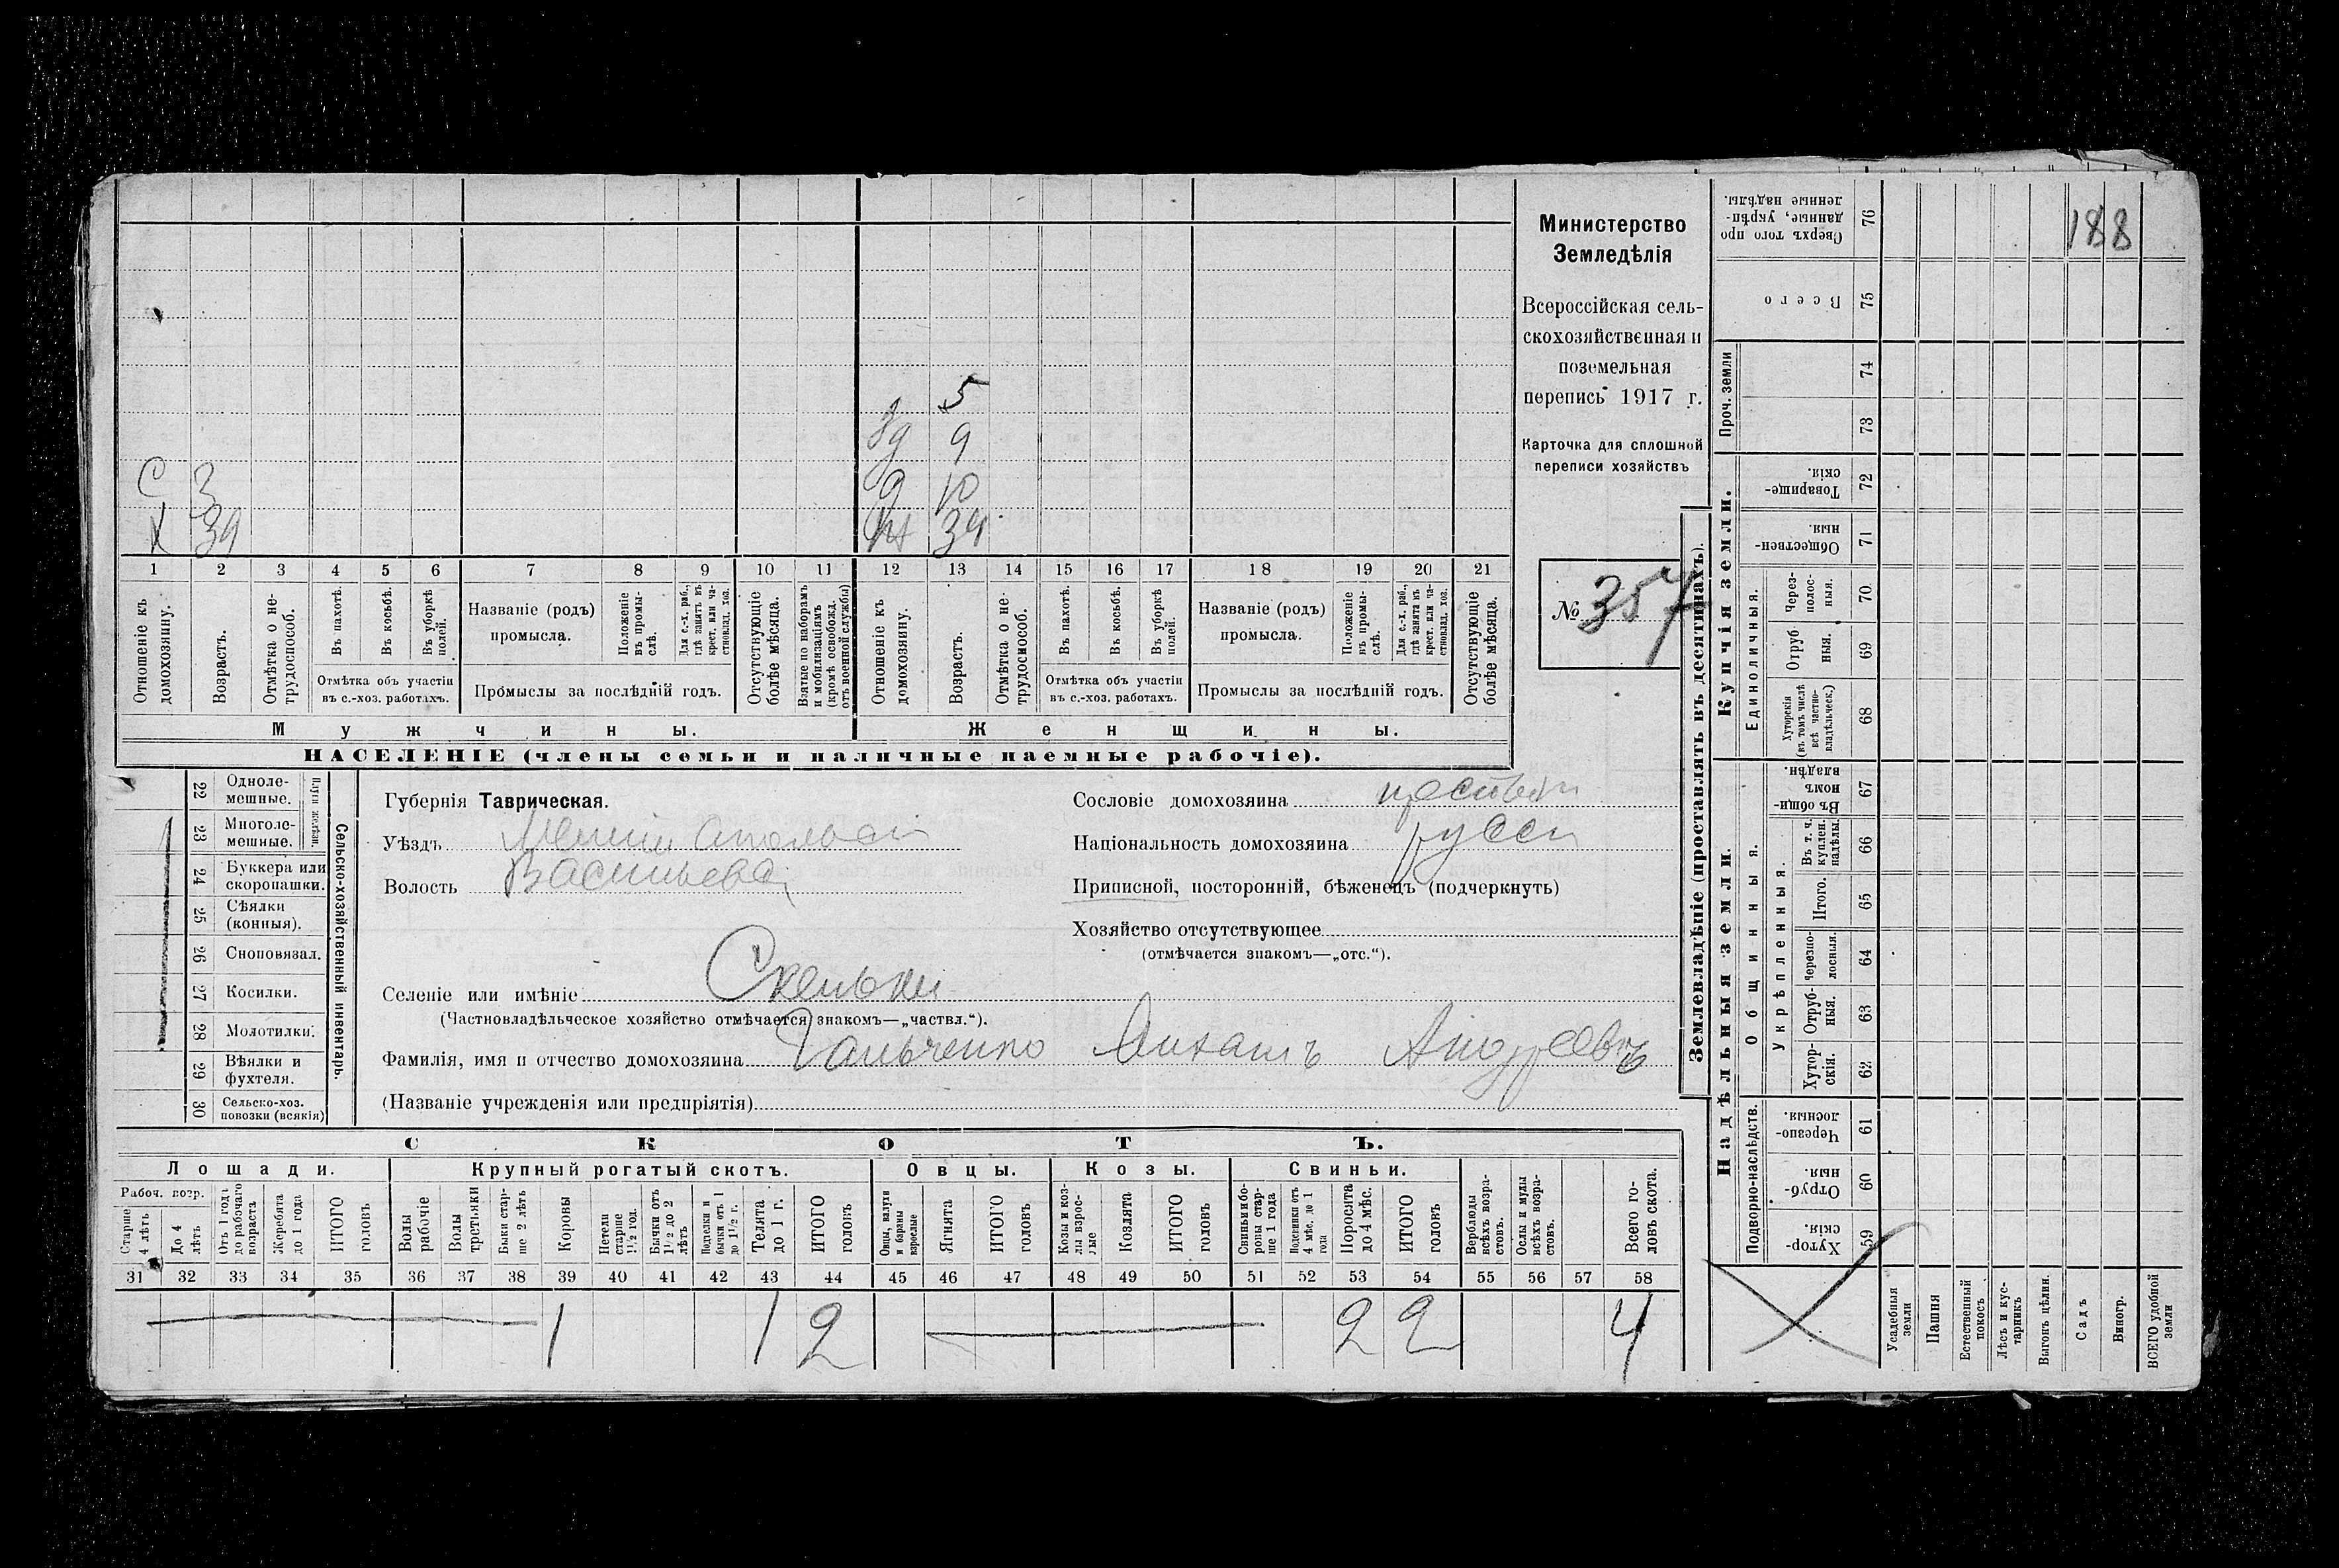 188
Министерство
Земледѣлія
Всероссійская сель-
скохозяйственная и
поземельная
перепись 1917 г.
Карточка для сплошной
переписи хозяйствъ
№ 357
5
9
С 3 д 10
Х 39 34
1 2 3 4 5 6 7 8 9 10 11 12 13 14 15 16 17 18 19 20 21
Отношеніе къ домохозяину.
Возрастъ.
Отмѣтка о не-трудоспособ.
Въ пахотѣ.
Въ косьбѣ.
Въ уборкѣ полей.
Отмѣтка объ участіи
въ с.-хоз. работахъ.
Названіе (родъ)
промысла.
Положеніе въ промы-слѣ.
Для с.-х. раб., гдѣ занятъ въ крест. или ча-стновлад. хоз.
Промыслы за послѣдній годъ.
Отсутствующіе болѣе мѣсяца.
Взятые по наборамъ и мобилизаціямъ (кромѣ освобожд. отъ военной службы)
Отношеніе къ домохозяину.
Возрастъ.
Отмѣтка о не-трудоспособ.
Въ пахотѣ.
Въ косьбѣ.
Въ уборкѣ полей.
Отмѣтка объ участіи
въ с.-хоз. работахъ.
Названіе (родъ)
промысла.
Положеніе въ промы-слѣ.
Для с.-х. раб., гдѣ занята въ крест. или ча-стновлад. хоз.
Промыслы за послѣдній годъ.
Отсутствующіе болѣе мѣсяца.
Мужчины. Женщины.
НАСЕЛЕНІЕ (члены семьи и наличные наемные рабочіе).
Сельско-хозяйственный инвентарь.
Плуги желѣзн.
22 Одноле-мешные.
23 Многоле-мешные.
24 Буккера или скоропашки.
25 Сѣялки (конныя).
26 Сноповязал.
27 Косилки.
28 Молотилки.
29 Вѣялки и фухтеля.
30 Сельско-хоз. повозки (всякія)
Губернія Таврическая.
Уѣздъ
Волость Васильевс
Сословіе домохозяина
Національность домохозяина русск
Приписной, посторонній, бѣженецъ (подчеркнуть)
Хозяйство отсутствующее
(отмѣчается знакомъ—„отс.“).
Селеніе или имѣніе Скельки
(Частновладѣльческое хозяйство отмѣчается знакомъ—„частвл.“).
Фамилія, имя и отчество домохозяина Гальченко Михаилъ Андреевъ
(Названіе учрежденія или предпріятія)
СКОТЪ.
Лошади. Крупный рогатый скотъ. Овцы. Козы. Свиньи.
Рабоч. возр.
Старше 4 лѣтъ
До 4 лѣтъ
Отъ 1 года до рабочаго возраста
Жеребята до 1 года
ИТОГО головъ
Волы рабочіе
Волы третьяки
Быки стар-ше 2 лѣтъ
Коровы
Нетели старше 1 1/2 год.
Бычки отъ 1 1/2 до 2 лѣтъ
Подтелки и бычки отъ 1 до 1 1/2 г.
Телята до 1 г.
ИТОГО головъ
Овцы, валухи и бараны взрослые
Ягнята
ИТОГО головъ
Козы и коз-лы взрос-лые
Козлята
ИТОГО головъ
Свиньи и бо-ровы стар-ше 1 года
Подсвинки отъ 4 мѣс. до 1 года
Поросята до 4 мѣс.
ИТОГО головъ
Верблюды всѣхъ возра-стовъ.
Ослы и мулы всѣхъ возра-стовъ.
Всего го-ловъ скота.
31 32 33 34 35 36 37 38 39 40 41 42 43 44 45 46 47 48 49 50 51 52 53 54 55 56 57 58
1 1 2 2 2 4
Землевладѣніе (проставлять въ десятинахъ).
Надѣльныя земли.
Купчія земли.
Проч. земли
Подворно-наслѣдств.
Общинныя.
Укрѣпленныя.
Единоличныя.
59 Хутор-скія.
60 Отруб-ныя.
61 Черезпо-лосныя.
62 Хутор-скія.
63 Отруб-ныя.
64 Черезпо-лосныя.
65 Итого.
66 Въ т. ч. куплен. надѣлы.
67 Въ общи-номъ владѣн.
68 Хуторскія (въ томъ числѣ всѣ частно-владѣльческ.)
69 Отруб-ныя.
70 Через-полос-ныя.
71 Обществен-ныя.
72 Товарище-скія.
73
74
75 Всего
76 Сверхъ того про-данные, укрѣп-ленные надѣлы.
Усадебныя земли
Пашня
Естественный покосъ
Лѣсъ и кус-тарникъ
Выгонъ цѣлин.
Садъ
Виногр.
ВСЕГО удобной земли